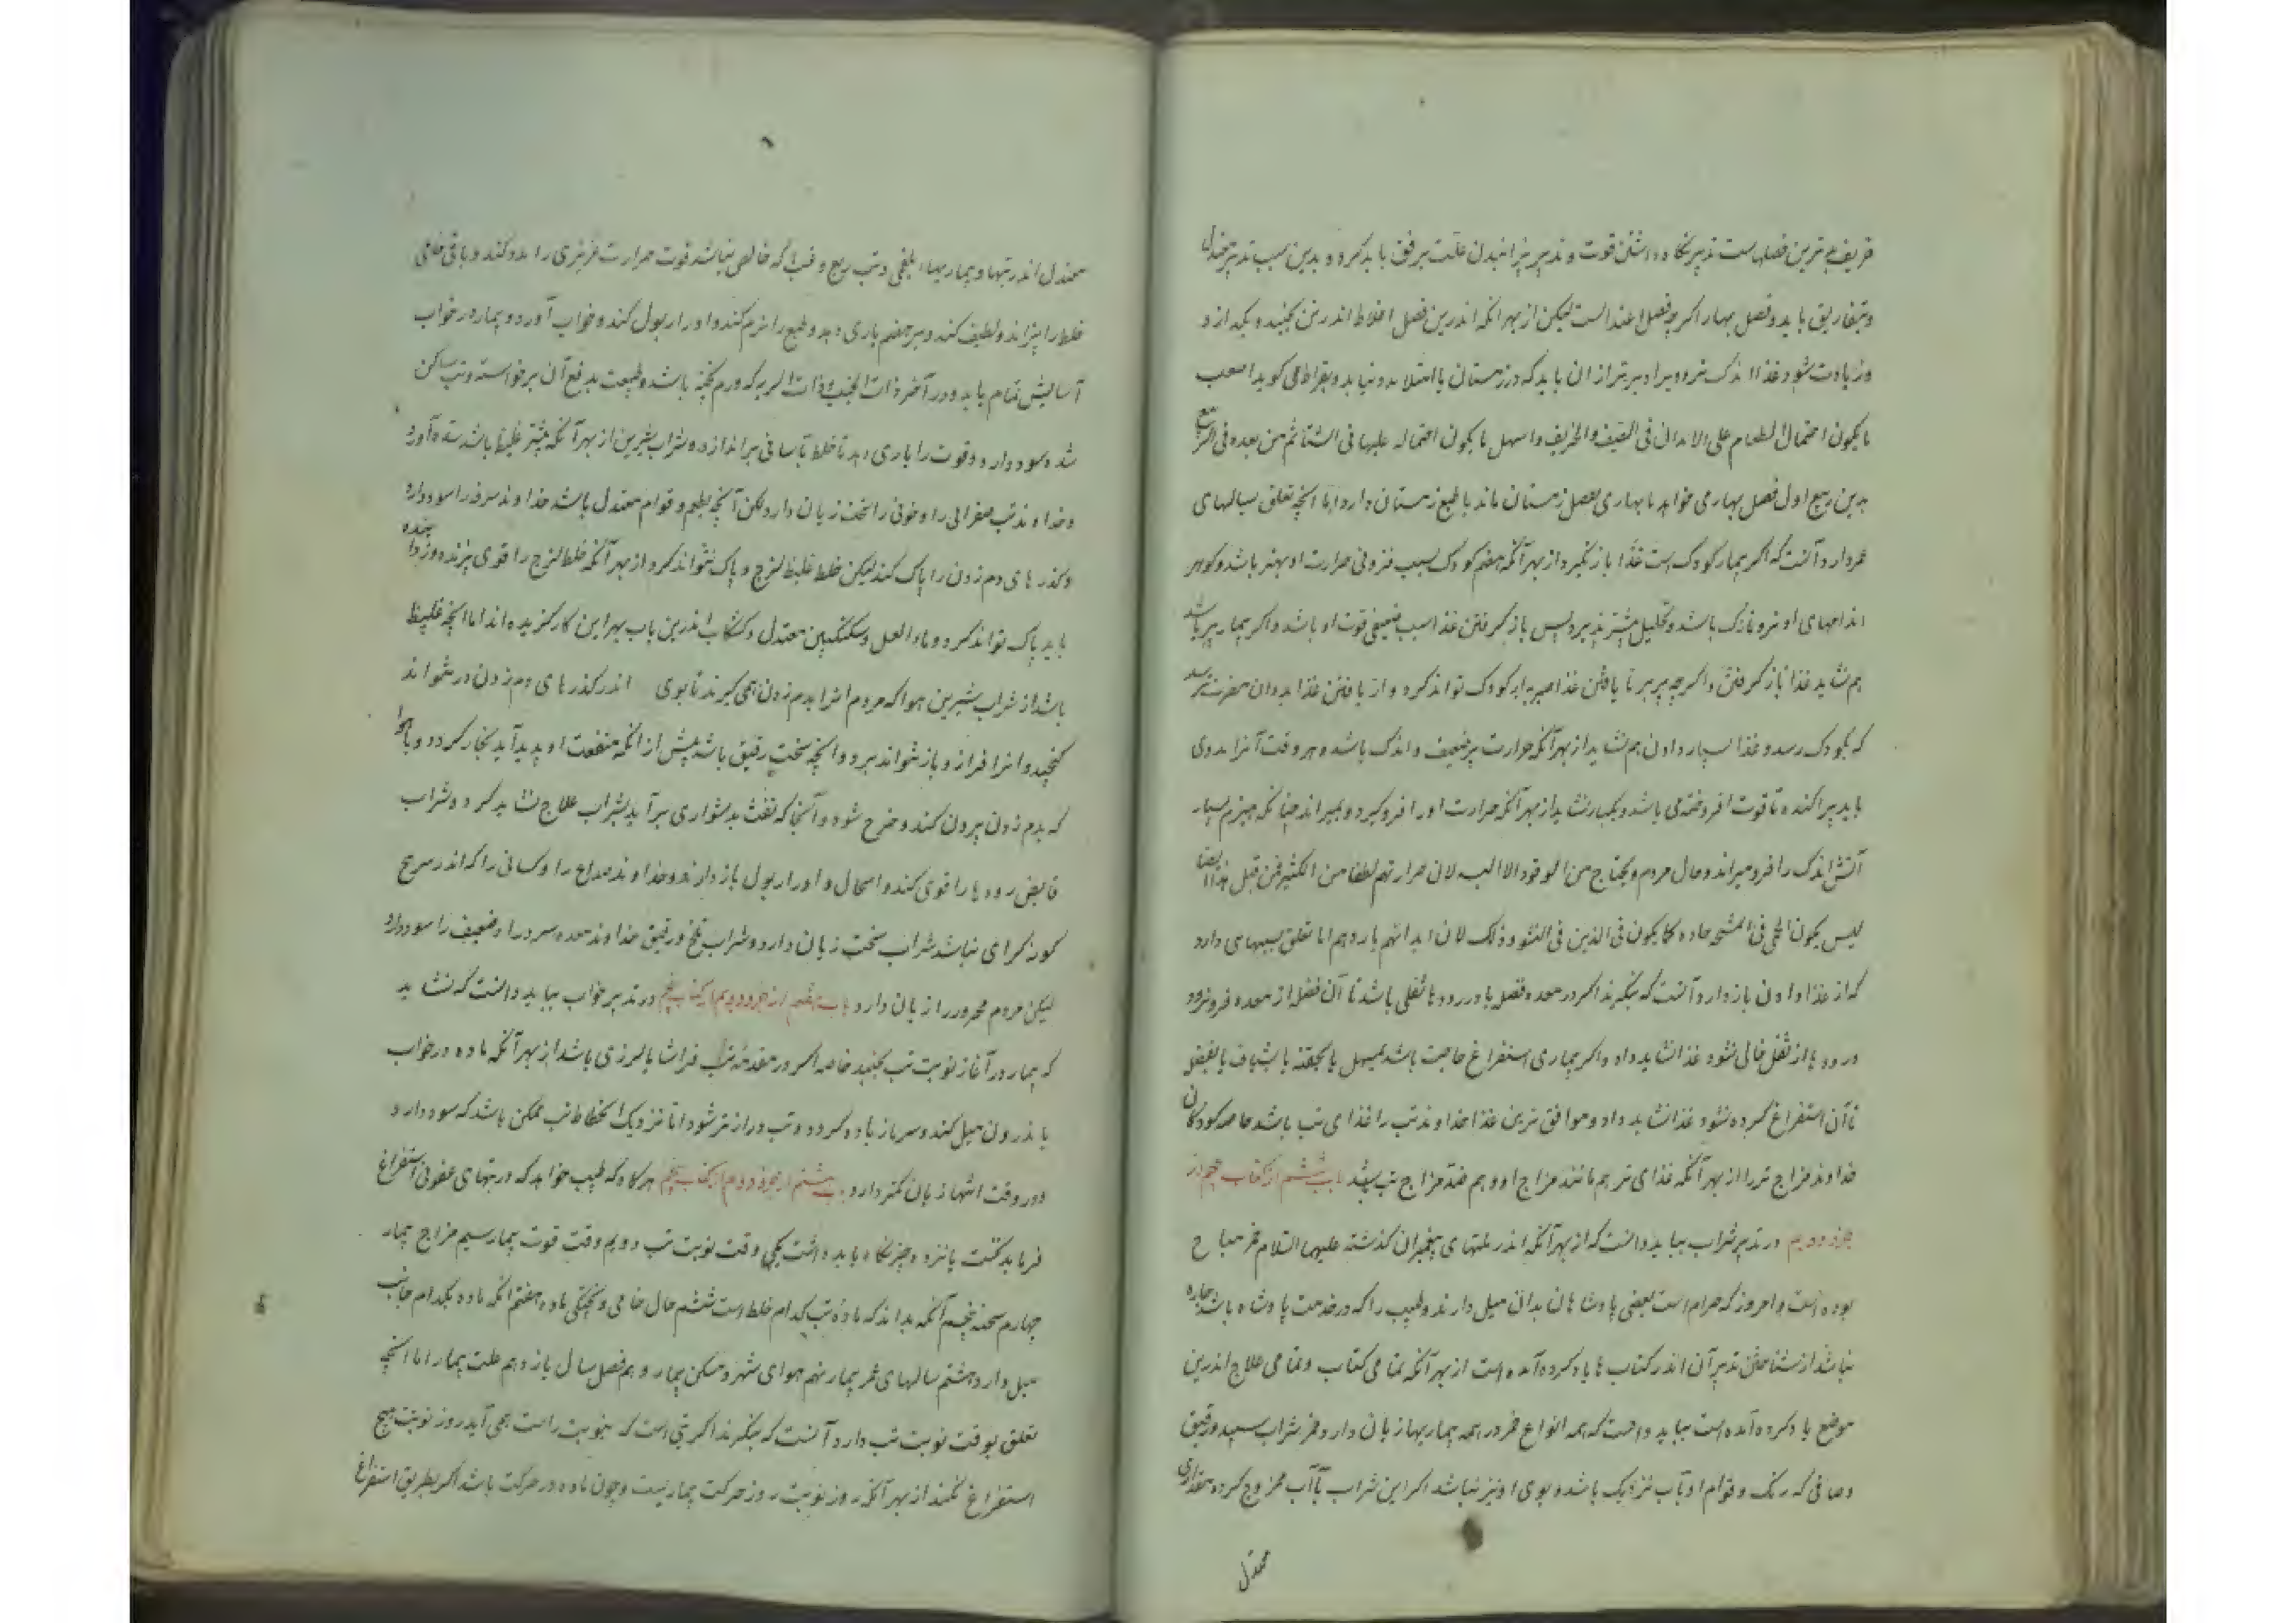 خریف بترین فصلهاست تدبیر نکاه داشتن قوت و تدبیر پزانیدن علت برفق باید کرد و بدین سبب تدبیر معتدل
و بتفاریق باید و فصل بهار اکرچه فصل اعتدالست لیکن از بهر آنکه اندرین فصل اخلاط اندر تن بجنبد و بکدازد و
وزیادت شود غذا اندک تر و دیرا دیرتر از ان باید که در زمستان یا امتلا بدو نیاید و بقراط می کوید اصعب
ما یکون احتمال الطعام علی الابدان فی الصیف والخریف واسهل ما یکون احتماله علیها فی الشتا ثم من بعده فی الربیع
بدین ربیع اول فصل بهار می خواهد تا بهاری بفصل زمستان ماند با طبع زمستان دارد اما آنچه تعلق بسالهای
عمر دارد آنست که اکر بیمار کودک است غذا باز نکیرد از بهر آنکه هضم کودک بسبب فزونی حرارت او بهتر باشد و کوهر
اندامهای او تر و نازک باشد و تحلیل بیشتر پذیرد پس باز کرفتن غذا سبب ضعیفی قوت او باشد و اکر بیمار پیر باشد
هم نشاید غذا باز کرفتن و اکرچه پیر بر نا یافتن غذا صبر به از کودک تواند کرد و از یافتن غذا بدوان مضرت نرسد
که بکودک رسد و غذا بسیار دادن هم نشاید از بهر آنکه حرارت پیر ضعیف و اندک باشد و هر وقت آنرا بدوی
باید پراکنده تا قوت افروخته می باشد و بیکبار نشاید از بهر آنکه حرارت او را فرو کیرد و بمیراند چنانکه هیزم بسیار
آتش اندک را فرو میراند و حال مردم ویحتاج من الوقود الا الیسیر لان حرارتهم تطفا من الکثیر فمن قبل هذا ایضا
لیس یکون الحمی فی المشایخ حاده کما یکون فی الذین فی النشو وذلک لان ابدانهم بارده اما تعلق بسببهایی دارد
که از غذا دادن باز دارد آنست که بنکرند اکر در معده فضل یا در روده ثفلی باشد تا آن فضل از معده فرو نرود
و روده از ثفل خالی نشود غذا نشاید داد و اکر بیماری استفراغ حاجت باشد بمسهل یا بحقنه یا بشیاف یا بفصد
تا آن استفراغ کرده نشود غذا نشاید داد و موافق ترین غذا خداوند تب را غذای تب باشد خاصه کودکان
خداوند مزاج تر را از بهر آنکه غذای تر هم مانند مزاج او و هم ضد مزاج تب باشد باب ششم از کتاب پنجم از
جزو دویم در تدبیر شراب بباید دانست که از بهر آنکه اندر ملتهای پیغمبران کذشته علیهم السلام خمر مباح
بوده است و امروز که حرام است بعضی پادشاهان بدان میل دارند و طبیب را که در خدمت پادشاه باشد چاره
نباشد از شناختن تدبیر آن اندر کتاب ها یاد کرده آمده است از بهر آنکه تمامی کتاب و تمامی علاج اندرین
موضع یاد کرده آمده است بباید دانست که همه انواع خمر در همه بیماریها زیان دارد و خمر شراب سپید و رقیق
و صافی که رنک و قوام او بآب نزدیک باشد و بوی او نیز نباشد اکر این شراب بآب ممزوج کرده بمقداری
معتدل
معتدل اندر تبها و بیماریهاء بلغمی و تب ربع و غب که خالص نباشد قوت حرارت غریزی را مدد کند و باقی خامی
خلط را بپزاند و لطیف کند و بر هضم یاری دهد و طبع را نرم کند و ادرار بول کند و خواب آورد و بیمار در خواب
آسایش تمام یابد و در آخر ذات الجنب و ذات الریه که ورم پخته باشد و طبیعت بدفع آن برخواسته و تب ساکن
شده سود دارد و قوت را یاری دهد تا خلط بآسانی براندازد و شراب شیرین از بهر آنکه بیشتر غلیظ باشد سده آورد
و خداوند تب صفرایی را و خونی را سخت زیان دارد ولکن آنچه بطعم و قوام معتدل باشد خداوند سرفه را سود دارد
و کذرهای دم زدن را پاک کند لیکن خلط غلیظ لزج و پاک نتواند کرد از بهر آنکه خلط لزج را قوی پزنده و زداینده
باید پاک تواند کرد و ماء العسل و سکنکبین معتدل و کشکاب اندرین باب بهر این کار کزیده اند اما آنچه غلیظ
باشد از شراب شیرین هوا که مردم آنرا بدم زدن همی کیرند تا بوی اندر کذرهای دم زدن در نتواند
کنجید و آنرا فراز و باز نتواند برد و آنچه سخت رقیق باشد پیش از آنکه منفعت او پدید آید بخار کردد و با هوا
که بدم زدن بیرون کنند و خرج شود و آنجا که نفث بدشواری برآید بشراب علاج نشاید کرد و شراب
قابض روده را قوی کند و اسهال و ادرار بول باز دارد و خداوند صداع را و کسانی را که اندر سرحح
کوزکرای نباشد شراب سخت زیان دارد و شراب تلخ و رقیق خداوند معده سرد را و ضعیف را سود دارد
لیکن مردم محرور را زیان دارد باب هفتم از جزو دویم از کتاب پنجم در تدبیر خواب بباید دانست که نشاید
که بیمار در آغاز نوبت تب بخسبد خاصه اکر در مقدمه تب فراشا یا لرزی باشد از بهر آنکه ماده در خواب
باندرون میل کند و سرما زیاده کردد و تب درازتر شود اما نزدیک انحطاط تب ممکن باشد که سود دارد
و در وقت انتها زیان کمتر دارد باب هشتم از جزو دویم از کتاب پنجم هرکاه که طبیب خواهد که در تبهای عفونی استفراغ
فرماید نخست پانزده چیز نکاه باید داشت یکی وقت نوبت تب دویم وقت قوت بیمار سیم مزاج بیمار
چهارم سحنه پنجم آنکه بداند که ماده تب کدام خلط است ششم حال خامی و پختکی ماده هفتم آنکه ماده بکدام جانب
میل دارد هشتم سالهای عمر بیمار نهم هوای شهر و مسکن بیمار دهم فصل سال یازدهم علت بیمار اما آنچه
تعلق بوقت نوبت تب دارد آنست که بنکرند اکر تبی است که بنوبت راست همی آید روز نوبت هیچ
استفراغ نکنند از بهر آنکه روز نوبت روز حرکت بیماریست و چون ماده در حرکت باشد اکر بطریق استفراغ